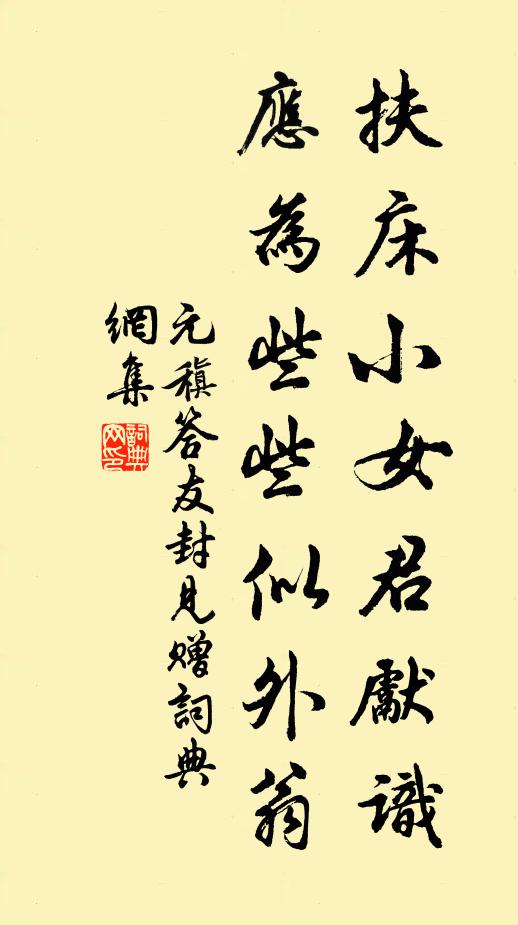 扶床小女君獻識
應為些些似外翁
元稹答友封見贈詞典
網集
詞典
网印